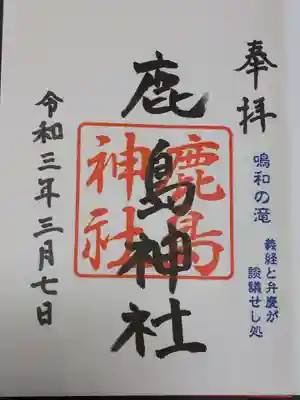 奉拝
鳴和の滝
義経と弁慶が
談議せし処
鹿島神社
鹿島
神社
令和三年三月七日